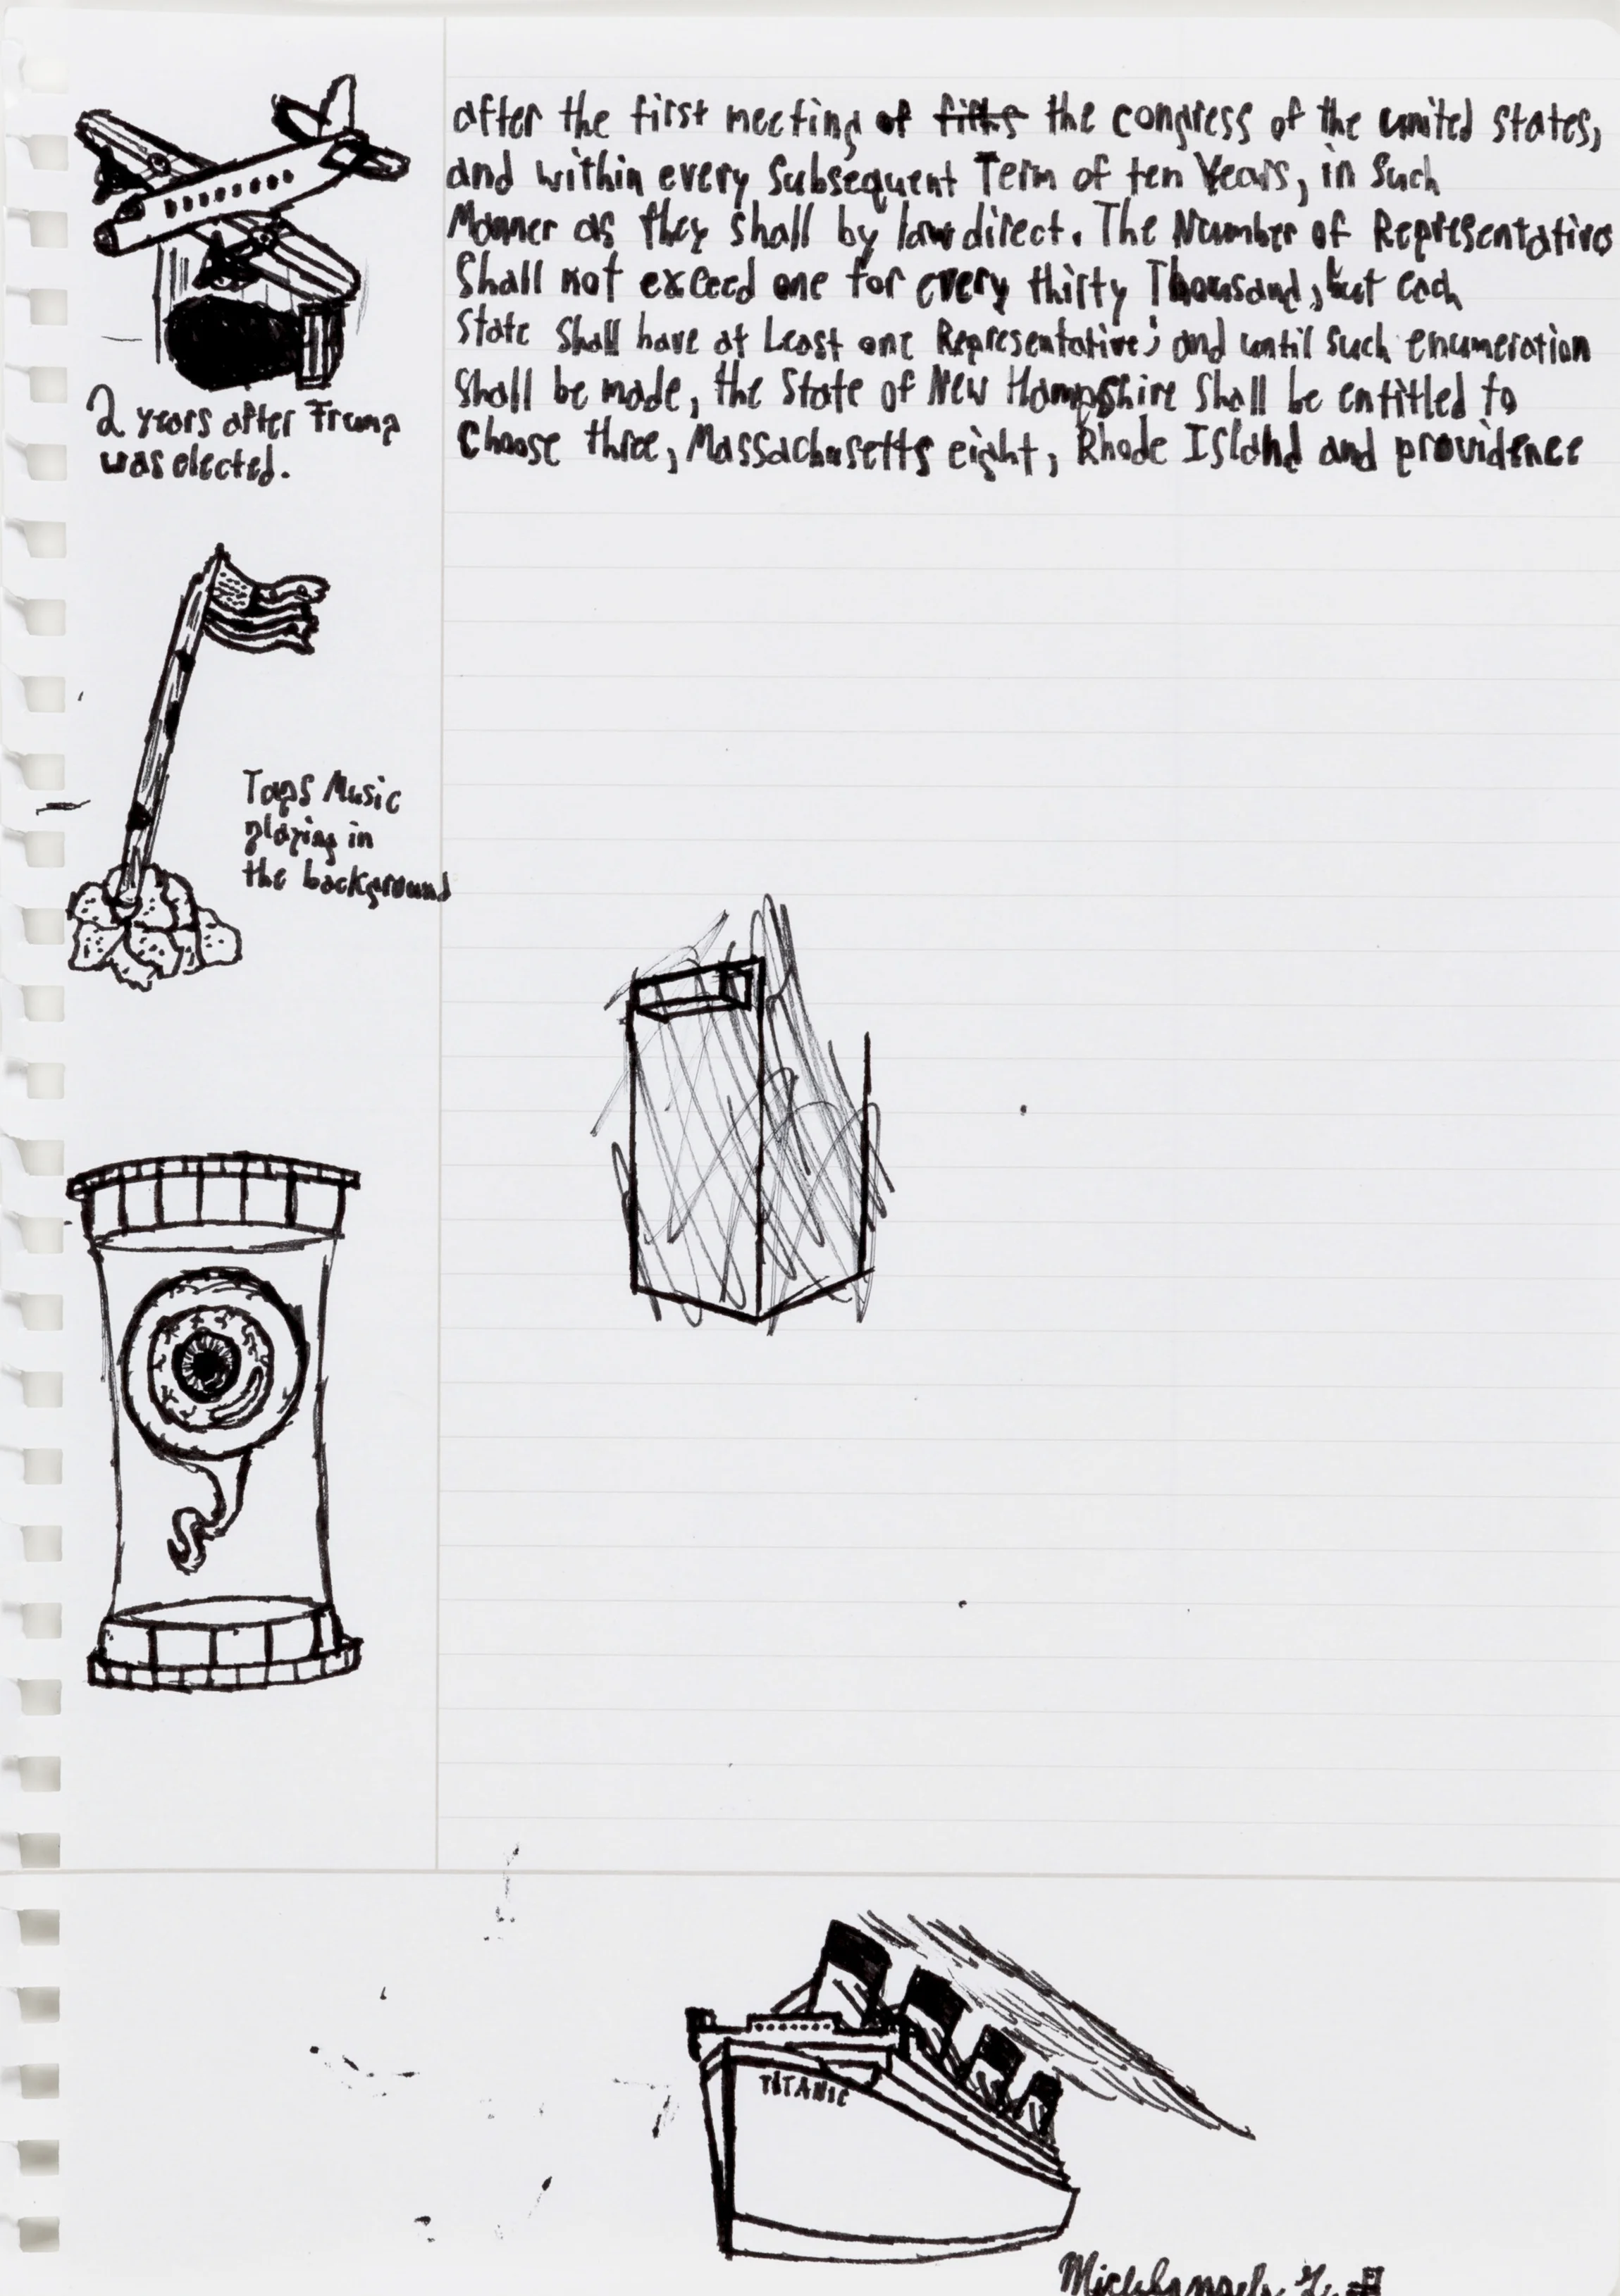 after the first meeting of fifths the congress of the united states,
and within every Subsequent Term of ten Years, in Such
Manner as they shall by law direct. The Number of Representative
Shall not exceed one for every thirty Thousand, but each
State Shall have at Least one Representative; and until such enumeration
shall be made, the State of New Hampshire Shall be entitled to
Choose three, Massachusetts eight, Rhode Island and providence
2 years after Trump
was elected.
Taps Music
playing in
the background
TITANIC